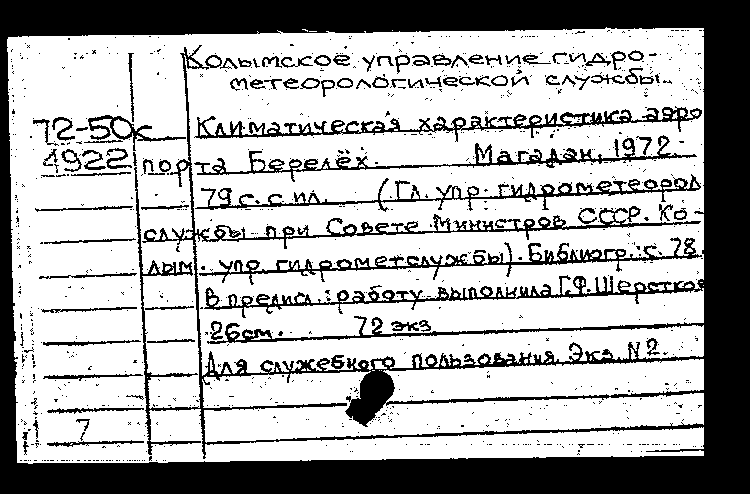 Колымское управление гидро-
метеорологической службы.
72-50с Климатическая характеристика аэро
1922 порта Берелёх. Магадан, 1972.
79 с. с ил. (Гл. упр. гидрометеорол
службы при Совете Министров СССР. Ко-
лым. упр. гидрометслужбы). Библиогр.: с. 78.
В предисл.: работу выполнила Г.Ф. Шерстков
26 см. 72 экз.
Для служебного пользования. Экз. N2.
7